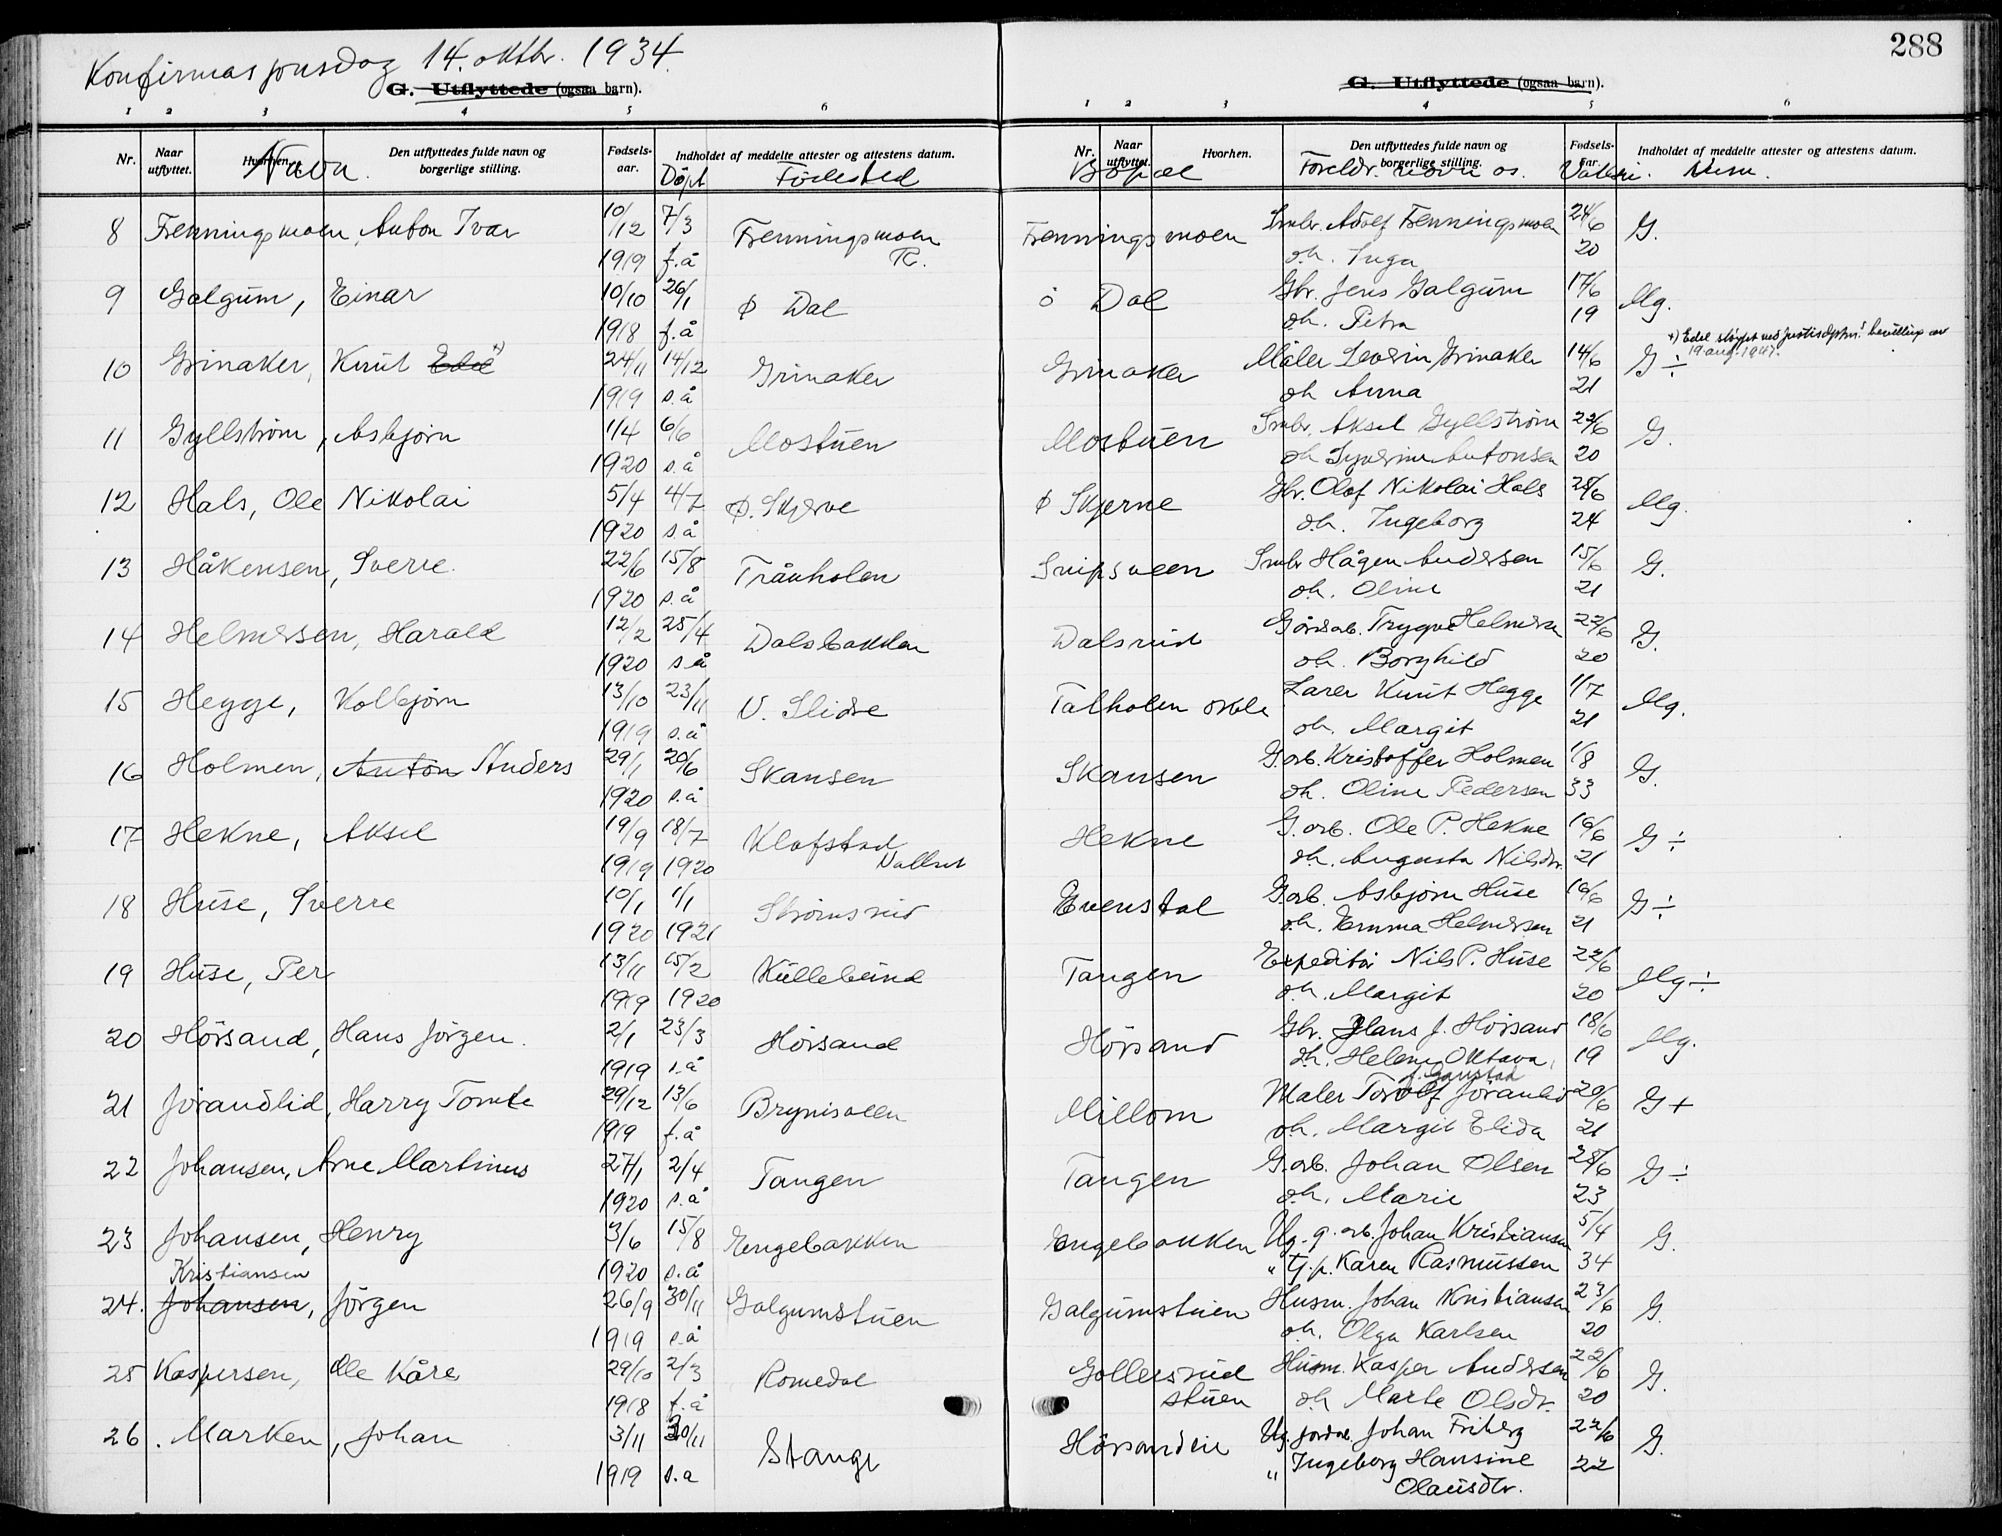 Konfirmasjonsdag 14. oktbr. 1934.
288
G. Utflyttede (ogsaa barn).
G. Utflyttede (ogsaa barn).
1 2 3 4 5 6
1 2 3 4 5 6
Nr. Naar utflyttet. Hvorhen. Den utflyttedes fulde navn og borgerlige stilling. Fødsels-aar. Indholdet af meddelte attester og attestens datum.
Nr. Naar utflyttet. Hvorhen. Den utflyttedes fulde navn og borgerlige stilling. Fødsels-aar. Indholdet af meddelte attester og attestens datum.
Navn. Döpt Födested
Bopæl Foreldr. navn
8 Fenningsmoen, Anton Ivar 10/12 7/3 Fenningsmoen Fenningsmoen Smbr. Adolf Fenningsmoen 24/6 G.
1919 f.å oh. Inga 20
9 Galgum, Einar 10/10 26/1 Ø Dal ö Dal Gbr. Jens Galgum 17/6 Mg.
1918 f.å oh. Petra 19
10 Grinaker, Knut Edel *) 24/11 14/12 Grinaker Grinaker Maler Severin Grinaker 14/6 G ÷
*) Edel sløyfet ved justisdptm!
19 aug. 1947.
1919 s.å oh Anna 21
11 Gyllström, Asbjörn 1/4 6/6 Mostuen Mostuen Smbr. Aksel Gyllström 22/6 G.
1920 s.å oh Syverine Antonsen 20
12 Hals, Ole Nikolai 5/4 4/7 Ø. Skjerve Ø Skjerve Gbr. Olof Nikolai Hals 28/6 Mg.
1920 s.å oh. Ingeborg 24
13 Håkensen, Sverre. 22/6 15/8 Trånholen Snipsveen Smbr Hågen Andersen 15/6 G.
1920 s.å oh. Oline 21
14 Helmersen, Harald 12/2 25/4 Dalsbakken Dalsrud Gårdsarb. Trygve Helmersen 22/6 G.
1920 s å oh. Borghild 20
15 Hegge, Kolbjörn 13/10 23/11 V. Slidre Talholen skole Lærer Knut Hegge 1/7 Mg.
1919 s.å oh. Margit 21
16 Holmen, Anton Anders 29/1 20/6 Skansen Skansen G.arb. Kristoffer Holmen 1/8 G.
1920 s.å oh. Oline Pedersen 33
17 Hekne, Aksel 19/9 18/7 Klofstad Hekne G.arb. Ole P. Hekne 16/6 G ÷
1919 1920 Vallset oh. Augusta Nilsdtr. 21
18 Huse, Sverre 10/1 1/1 Strömsrud Evenstal G.arb. Asbjörn Huse 16/6 G ÷
1920 1921 oh. Emma Helmersen 21
19 Huse, Per 13/11 15/2 Kullebund Tangen Expeditör Nils P. Huse 22/6 Mg ÷
1919 1920 oh. Margit 20
20 Hörsand, Hans Jörgen. 2/1 23/3 Hörsand Hörsand Gbr. Hans J. Hörsand 18/6 Mg.
1919 s.å oh. Helene Oktava, 19
21 Jörandlid, Harry Tomte 29/12 13/6 Brynisveen Millom Maler Torolf Jörandlid 20/6 G +
1919 f.å oh. Margit Elida 21
22 Johansen, Arne Martinus 27/1 2/4 Tangen Tangen G.arb. Johan Olsen 28/6 G ÷
1920 s.å oh. Marie 23
23 Johansen, Henry 3/6 15/8 Engebakken Engebakken Ug. g.arb. Johan Kristiansen 5/4 G.
Kristiansen 1920 s.å " tj.p. Karen Rasmussen 34
24. Johansen, Jörgen 26/9 30/11 Galgumstuen Galgumstuen Husm. Johan Kristiansen 23/6 G.
1919 s.å oh. Olga Karlsen 20
25 Kaspersen, Ole Kåre 29/10 2/3 Romedal Gollersrud Husm. Kasper Andersen 22/6 G.
1918 f.å stuen oh Marte Olsdr. 20
26. Marken, Johan 3/11 30/11 Stange Hörsandeie Ug. jordar. Johan Friberg 22/6 G.
1919 s.a " Ingeborg Hansine 22
Olausdtr.